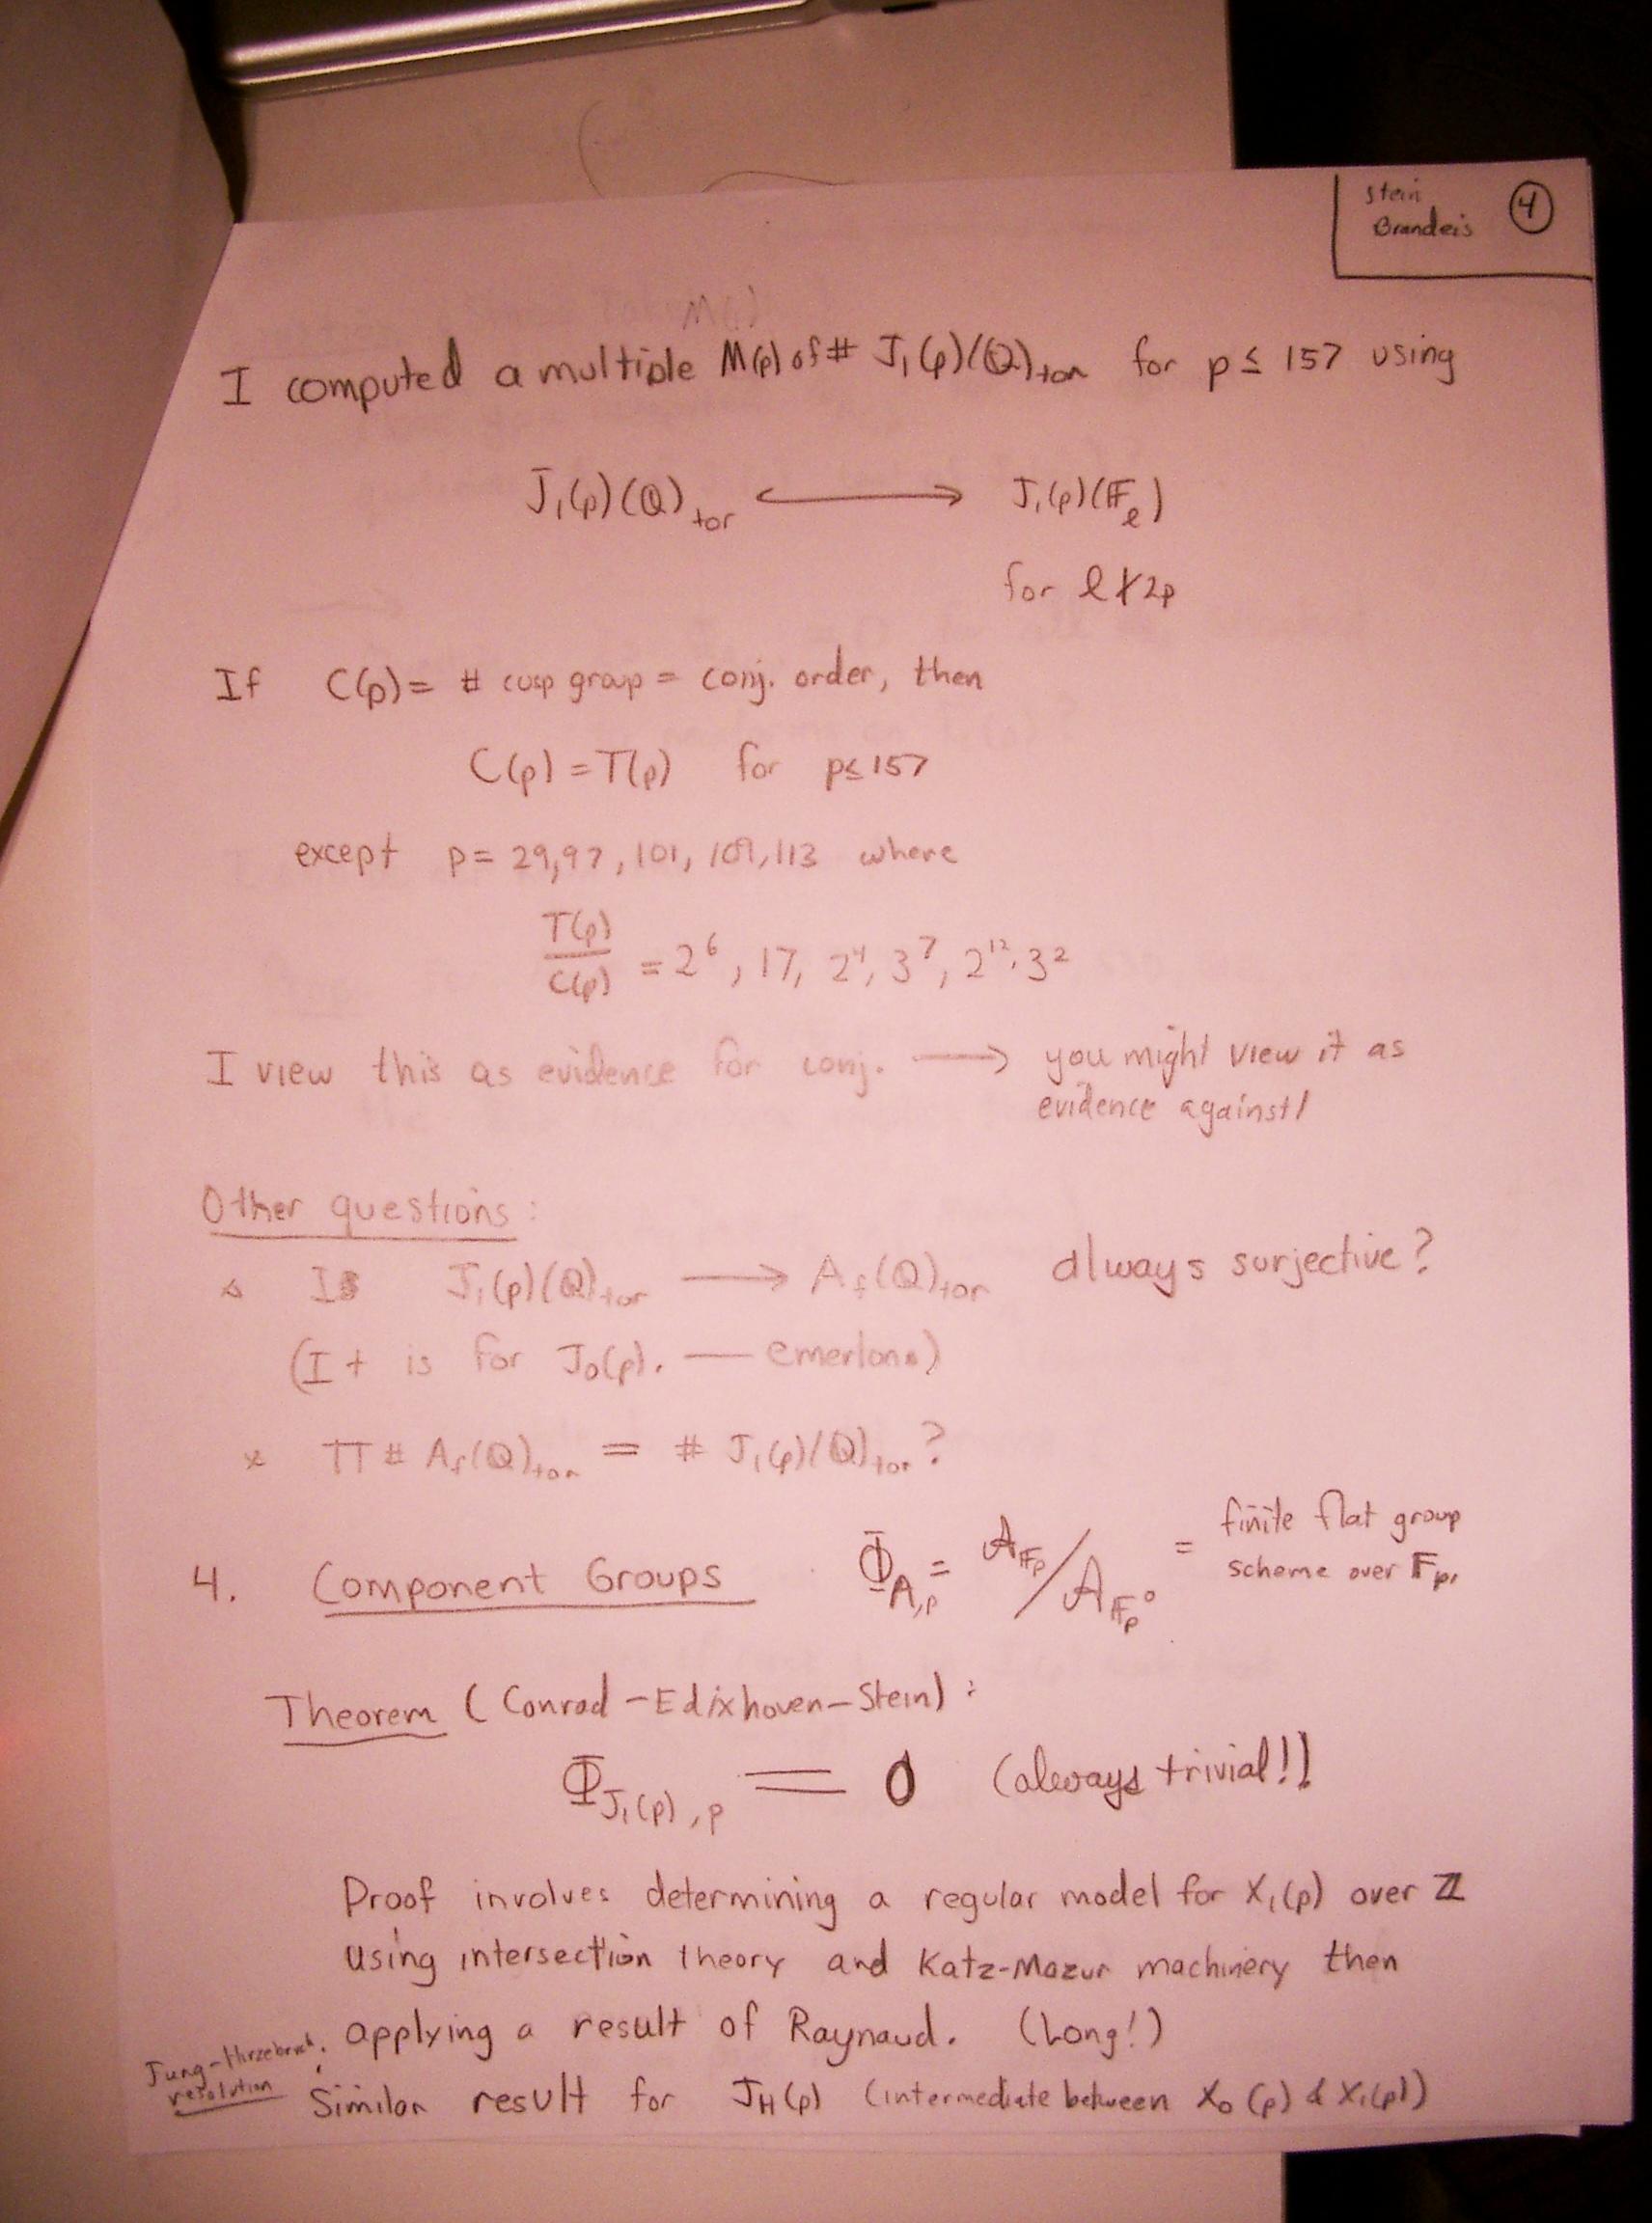 Stein
Brandeis
4
M(p)
I computed a multiple M(p) of # J₁(p)(ℚ)tor for p ≤ 157 using
J₁(p)(ℚ)tor ⟷ J₁(p)(𝔽ℓ)
for ℓ∤2p
If C(p) = # cusp group = conj. order, then
C(p) = T(p) for p≤157
except p = 29, 97, 101, 109, 113 where
T(p)/C(p) = 2⁶, 17, 2⁴, 3⁷, 2¹²·3²
I view this as evidence for conj. ⟶ you might view it as
evidence against!
Other questions:
Is J₁(p)(ℚ)tor ⟶ A_f(ℚ)tor always surjective?
(It is for J₀(p). — Emerton.)
* Π # A_f(ℚ)tor = # J₁(p)(ℚ)tor?
4. Component Groups Φ_A,p = 𝒜_𝔽p / 𝒜_𝔽p° = finite flat group
scheme over 𝔽p.
Theorem (Conrad-Edixhoven-Stein):
Φ_J₁(p),p = 0 (always trivial!!)
Proof involves determining a regular model for X₁(p) over ℤ
using intersection theory and Katz-Mazur machinery then
applying a result of Raynaud. (Long!)
Jung-Hirzebruch
resolution
Similar result for J_H(p) (intermediate between X₀(p) & X₁(p))